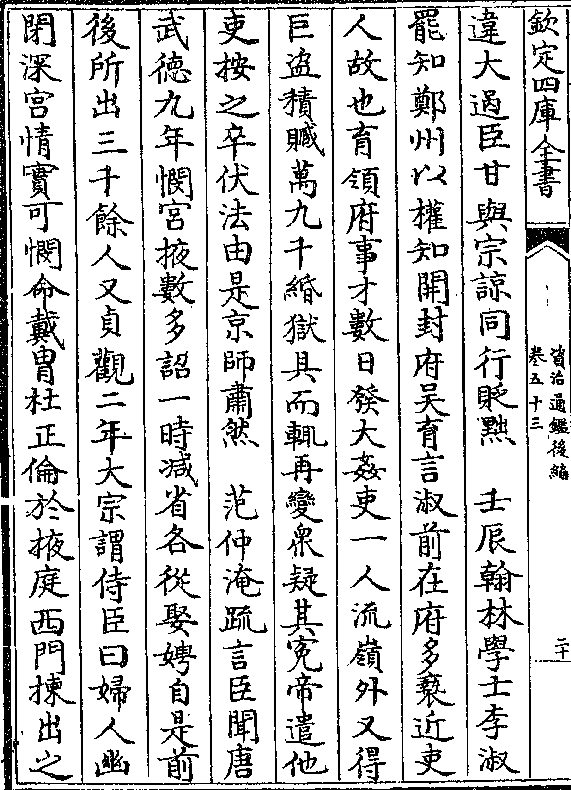 欽定四庫全書
資治通鑑後編
卷五十三
二十
違大過臣甘與宗諒同行貶黜　壬辰翰林學士李淑
罷知鄭州以權知開封府吳育言淑前在府多褻近吏
人故也育領府事才數日發大姦吏一人流嶺外又得
巨盜積贓萬九千緡獄具而輒再變衆疑其寃帝遣他
吏按之卒伏法由是京師肅然　范仲淹疏言臣聞唐
武德九年憫宮掖數多詔一時减省各從娶娉自是前
後所出三千餘人又貞觀二年大宗謂侍臣曰婦人幽
閉深宫情實可憫命戴胄杜正倫於掖庭西門揀出之